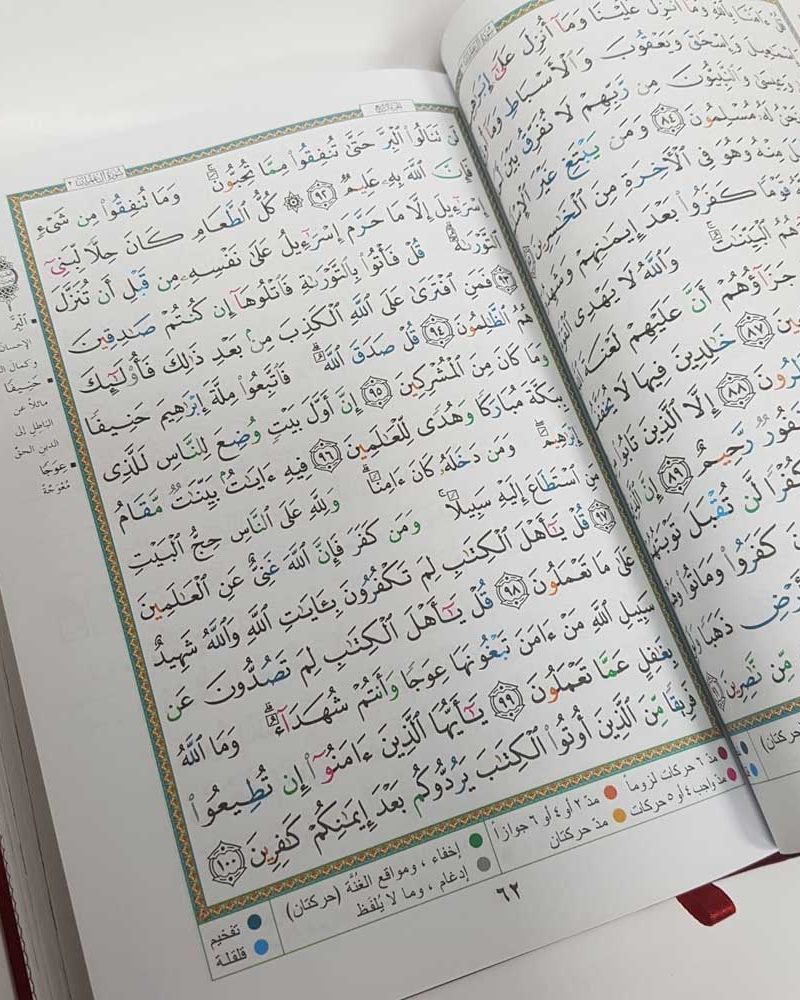 قُلْ ءَامَنَّا بِٱللَّهِ وَمَآ أُنزِلَ عَلَيْنَا وَمَآ أُنزِلَ عَلَىٰٓ
إِسْمَٰعِيلَ وَإِسْحَٰقَ وَيَعْقُوبَ وَٱلْأَسْبَاطِ وَمَآ
وَعِيسَىٰ وَٱلنَّبِيُّونَ مِن رَّبِّهِمْ لَا نُفَرِّقُ بَيْنَ
وَنَحْنُ لَهُۥ مُسْلِمُونَ ٨٤ وَمَن يَبْتَغِ غَيْرَ
مِنْهُ وَهُوَ فِى ٱلْأَخِرَةِ مِنَ ٱلْخَٰسِرِينَ
قَوْمًا كَفَرُوا۟ بَعْدَ إِيمَٰنِهِمْ
ٱلْبَيِّنَٰتُ ۚ وَٱللَّهُ لَا يَهْدِى
جَزَآؤُهُمْ أَنَّ عَلَيْهِمْ لَعْنَةَ
٨٧ خَٰلِدِينَ فِيهَا لَا
٨٨ إِلَّا ٱلَّذِينَ تَابُوا۟
غَفُورٌ رَّحِيمٌ ٨٩ إِنَّ
كُفْرًا لَّن تُقْبَلَ
كَفَرُوا۟ وَمَاتُوا۟
ذَهَبًا
مِّن نَّٰصِرِينَ
سُورَةُ آلِ عِمْرَان ٣
لَن تَنَالُوا۟ ٱلْبِرَّ حَتَّىٰ تُنفِقُوا۟ مِمَّا تُحِبُّونَ ۚ وَمَا تُنفِقُوا۟ مِن شَىْءٍ
فَإِنَّ ٱللَّهَ بِهِۦ عَلِيمٌ ٩٢ ۞ كُلُّ ٱلطَّعَامِ كَانَ حِلًّا لِّبَنِىٓ
إِسْرَٰٓءِيلَ إِلَّا مَا حَرَّمَ إِسْرَٰٓءِيلُ عَلَىٰ نَفْسِهِۦ مِن قَبْلِ أَن تُنَزَّلَ
ٱلتَّوْرَىٰةُ ۗ قُلْ فَأْتُوا۟ بِٱلتَّوْرَىٰةِ فَٱتْلُوهَآ إِن كُنتُمْ صَٰدِقِينَ
٩٣ فَمَنِ ٱفْتَرَىٰ عَلَى ٱللَّهِ ٱلْكَذِبَ مِنۢ بَعْدِ ذَٰلِكَ فَأُو۟لَٰٓئِكَ
هُمُ ٱلظَّٰلِمُونَ ٩٤ قُلْ صَدَقَ ٱللَّهُ ۗ فَٱتَّبِعُوا۟ مِلَّةَ إِبْرَٰهِيمَ حَنِيفًا
وَمَا كَانَ مِنَ ٱلْمُشْرِكِينَ ٩٥ إِنَّ أَوَّلَ بَيْتٍ وُضِعَ لِلنَّاسِ لَلَّذِى
بِبَكَّةَ مُبَارَكًا وَهُدًى لِّلْعَٰلَمِينَ ٩٦ فِيهِ ءَايَٰتٌۢ بَيِّنَٰتٌ مَّقَامُ
إِبْرَٰهِيمَ ۖ وَمَن دَخَلَهُۥ كَانَ ءَامِنًا ۗ وَلِلَّهِ عَلَى ٱلنَّاسِ حِجُّ ٱلْبَيْتِ
مَنِ ٱسْتَطَاعَ إِلَيْهِ سَبِيلًا ۚ وَمَن كَفَرَ فَإِنَّ ٱللَّهَ غَنِىٌّ عَنِ ٱلْعَٰلَمِينَ
٩٧ قُلْ يَٰٓأَهْلَ ٱلْكِتَٰبِ لِمَ تَكْفُرُونَ بِـَٔايَٰتِ ٱللَّهِ وَٱللَّهُ شَهِيدٌ
عَلَىٰ مَا تَعْمَلُونَ ٩٨ قُلْ يَٰٓأَهْلَ ٱلْكِتَٰبِ لِمَ تَصُدُّونَ عَن
سَبِيلِ ٱللَّهِ مَنْ ءَامَنَ تَبْغُونَهَا عِوَجًا وَأَنتُمْ شُهَدَآءُ ۗ وَمَا ٱللَّهُ
بِغَٰفِلٍ عَمَّا تَعْمَلُونَ ٩٩ يَٰٓأَيُّهَا ٱلَّذِينَ ءَامَنُوٓا۟ إِن تُطِيعُوا۟
فَرِيقًا مِّنَ ٱلَّذِينَ أُوتُوا۟ ٱلْكِتَٰبَ يَرُدُّوكُم بَعْدَ إِيمَٰنِكُمْ كَٰفِرِينَ ١٠٠
ٱلْبِرَّ
وكمال
حَنِيفًا
مائلاً عن
الباطل إلى
الدين الحقّ
عِوَجًا
مُعْوَجّةً
مدّ ٦ حركات لزوماً
مدّ ٢ أو ٤ أو ٦ جوازاً
مدّ واجب ٤ أو ٥ حركات
مدّ حركتان
إخفاء ، ومواقع الغنّة (حركتان)
إدغام ، وما لا يُلفَظ
تفخيم
قلقلة
٦٢